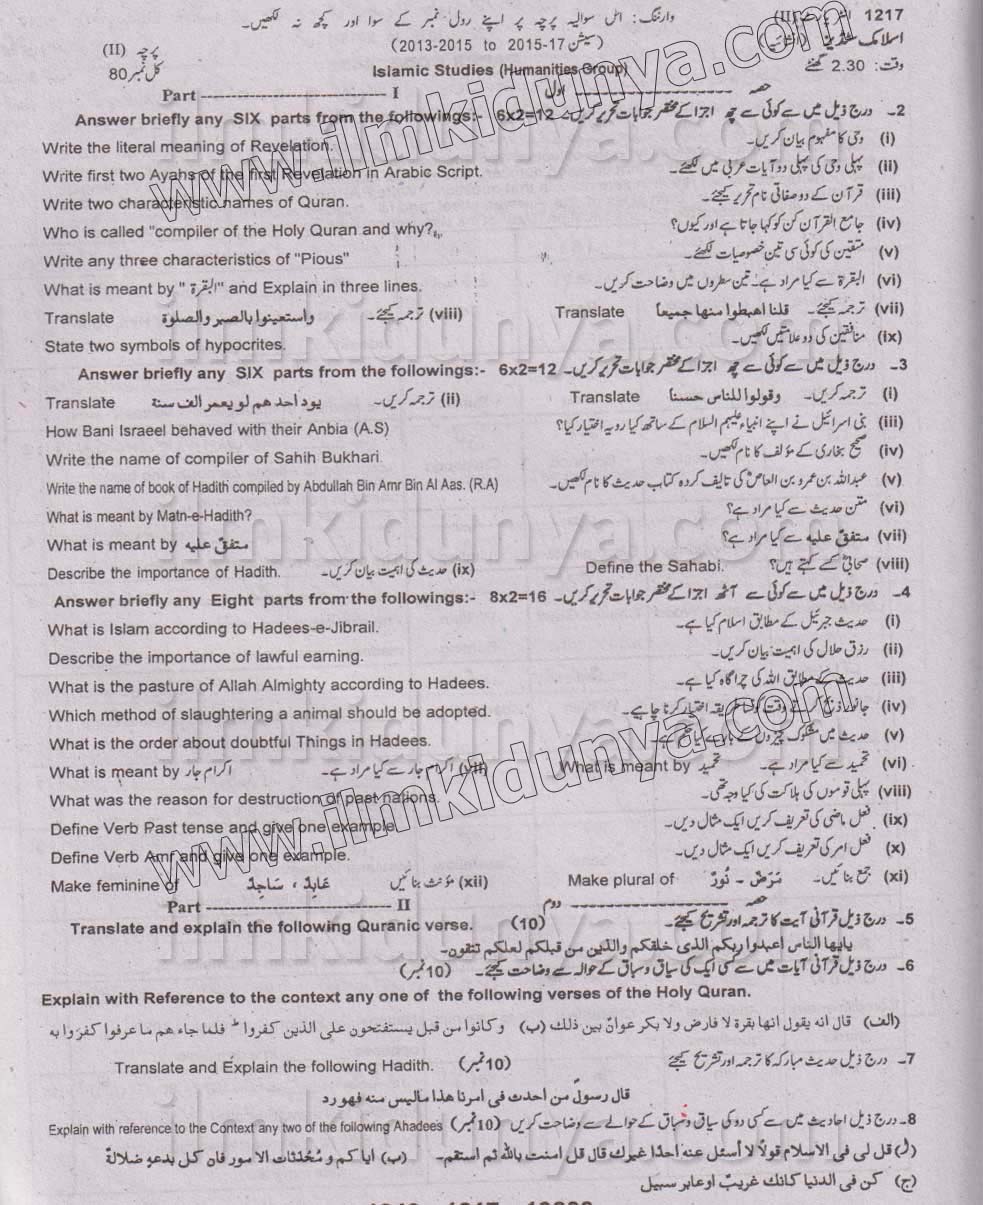 وارننگ: اس سوالیہ پرچہ پر اپنے رول نمبر کے سوا اور کچھ نہ لکھیں۔ (II) 1217
اسلامک سٹڈیز (انشائیہ) (سیشن 17-2015 to 2013-2015) پرچہ (II)
وقت: 2.30 گھنٹے Islamic Studies (Humanities Group) کل نمبر 80
Part ------------ I حصہ ------------ اول
2۔ درج ذیل میں سے کوئی سے چھ اجزا کے مختصر جوابات تحریر کریں۔ 6x2=12 Answer briefly any SIX parts from the followings:-
(i) وحی کا مفہوم بیان کریں۔ Write the literal meaning of Revelation.
(ii) پہلی وحی کی پہلی دو آیات عربی میں لکھئے۔ Write first two Ayahs of the first Revelation in Arabic Script.
(iii) قرآن کے دو صفاتی نام تحریر کیجئے۔ Write two characteristic names of Quran.
(iv) جامع القرآن کن کو کہا جاتا ہے اور کیوں؟ Who is called "compiler of the Holy Quran and why?
(v) متقین کی کوئی سی تین خصوصیات لکھئے۔ Write any three characteristics of "Pious"
(vi) البقرة سے کیا مراد ہے؟ تین سطروں میں وضاحت کریں۔ What is meant by " البقرة" and Explain in three lines.
(vii) ترجمہ کیجئے۔ قلنا اهبطوا منها جميعاً Translate (viii) ترجمہ کیجئے۔ واستعينوا بالصبر والصلوة Translate
(ix) منافقین کی دو علامتیں لکھیں۔ State two symbols of hypocrites.
3۔ درج ذیل میں سے کوئی سے چھ اجزا کے مختصر جوابات تحریر کریں۔ 6x2=12 Answer briefly any SIX parts from the followings:-
(i) ترجمہ کریں۔ وقولوا للناس حسنا Translate (ii) ترجمہ کریں۔ يود احد هم لو يعمر الف سنة Translate
(iii) بنی اسرائیل نے اپنے انبیاء علیہم السلام کے ساتھ کیا رویہ اختیار کیا؟ How Bani Israeel behaved with their Anbia (A.S)
(iv) صحیح بخاری کے مؤلف کا نام لکھیں۔ Write the name of compiler of Sahih Bukhari.
(v) عبداللہ بن عمرو بن العاصؓ کی تالیف کردہ کتاب حدیث کا نام لکھیں۔ Write the name of book of Hadith compiled by Abdullah Bin Amr Bin Al Aas. (R.A)
(vi) متن حدیث سے کیا مراد ہے؟ What is meant by Matn-e-Hadith?
(vii) متفقٌ عليه سے کیا مراد ہے؟ What is meant by متفقٌ عليه
(viii) صحابیؓ کسے کہتے ہیں؟ Define the Sahabi. (ix) حدیث کی اہمیت بیان کریں۔ Describe the importance of Hadith.
4۔ درج ذیل میں سے کوئی سے آٹھ اجزا کے مختصر جوابات تحریر کریں۔ 8x2=16 Answer briefly any Eight parts from the followings:-
(i) حدیث جبرئیل کے مطابق اسلام کیا ہے۔ What is Islam according to Hadees-e-Jibrail.
(ii) رزق حلال کی اہمیت بیان کریں۔ Describe the importance of lawful earning.
(iii) حدیث کے مطابق اللہ کی چراگاہ کیا ہے۔ What is the pasture of Allah Almighty according to Hadees.
(iv) جانور ذبح کرتے وقت کونسا طریقہ اختیار کرنا چاہیے۔ Which method of slaughtering a animal should be adopted.
(v) حدیث میں مشکوک چیزوں کے بارے کیا حکم ہے۔ What is the order about doubtful Things in Hadees.
(vi) تحمید سے کیا مراد ہے۔ What is meant by تحمید (vii) اکرام جار سے کیا مراد ہے۔ What is meant by اکرام جار
(viii) پہلی قوموں کی ہلاکت کی کیا وجہ تھی۔ What was the reason for destruction of past nations.
(ix) فعل ماضی کی تعریف کریں ایک مثال دیں۔ Define Verb Past tense and give one example.
(x) فعل امر کی تعریف کریں ایک مثال دیں۔ Define Verb Amr and give one example.
(xi) جمع بنائیں۔ مَرَضٌ - نُورٌ Make plural of (xii) مؤنث بنائیں عَابِدٌ ، سَاجِدٌ Make feminine of
Part ------------ II حصہ ------------ دوم
5۔ درج ذیل قرآنی آیت کا ترجمہ اور تشریح کیجئے۔ (10) Translate and explain the following Quranic verse.
يايها الناس اعبدوا ربكم الذى خلقكم والذين من قبلكم لعلكم تتقون۔
6۔ درج ذیل قرآنی آیات میں سے کسی ایک کی سیاق و سباق کے حوالہ سے وضاحت کیجئے۔ (10 نمبر)
Explain with Reference to the context any one of the following verses of the Holy Quran.
(الف) قال انه يقول انها بقرة لا فارض ولا بكر عوان بين ذلك (ب) وكانوا من قبل يستفتحون على الذين كفروا فلما جاء هم ما عرفوا كفروا به
7۔ درج ذیل حدیث مبارکہ کا ترجمہ اور تشریح کیجئے (10 نمبر) Translate and Explain the following Hadith.
قال رسول من احدث فى امرنا هذا ماليس منه فهو رد
8۔ درج ذیل احادیث میں سے کسی دو کی سیاق و سباق کے حوالے سے وضاحت کریں (10 نمبر) Explain with reference to the Context any two of the following Ahadees
(ا) قل لى فى الاسلام قولاً لا اسئل عنه احدًا غيرك قال قل امنت بالله ثم استقم۔ (ب) ايا كم و مُحدثات الا مور فان كل بدعةٍ ضلالة
(ج) كن فى الدنيا كانك غريبٌ او عابر سبيل
www.ilmkidunya.com
www.ilmkidunya.com